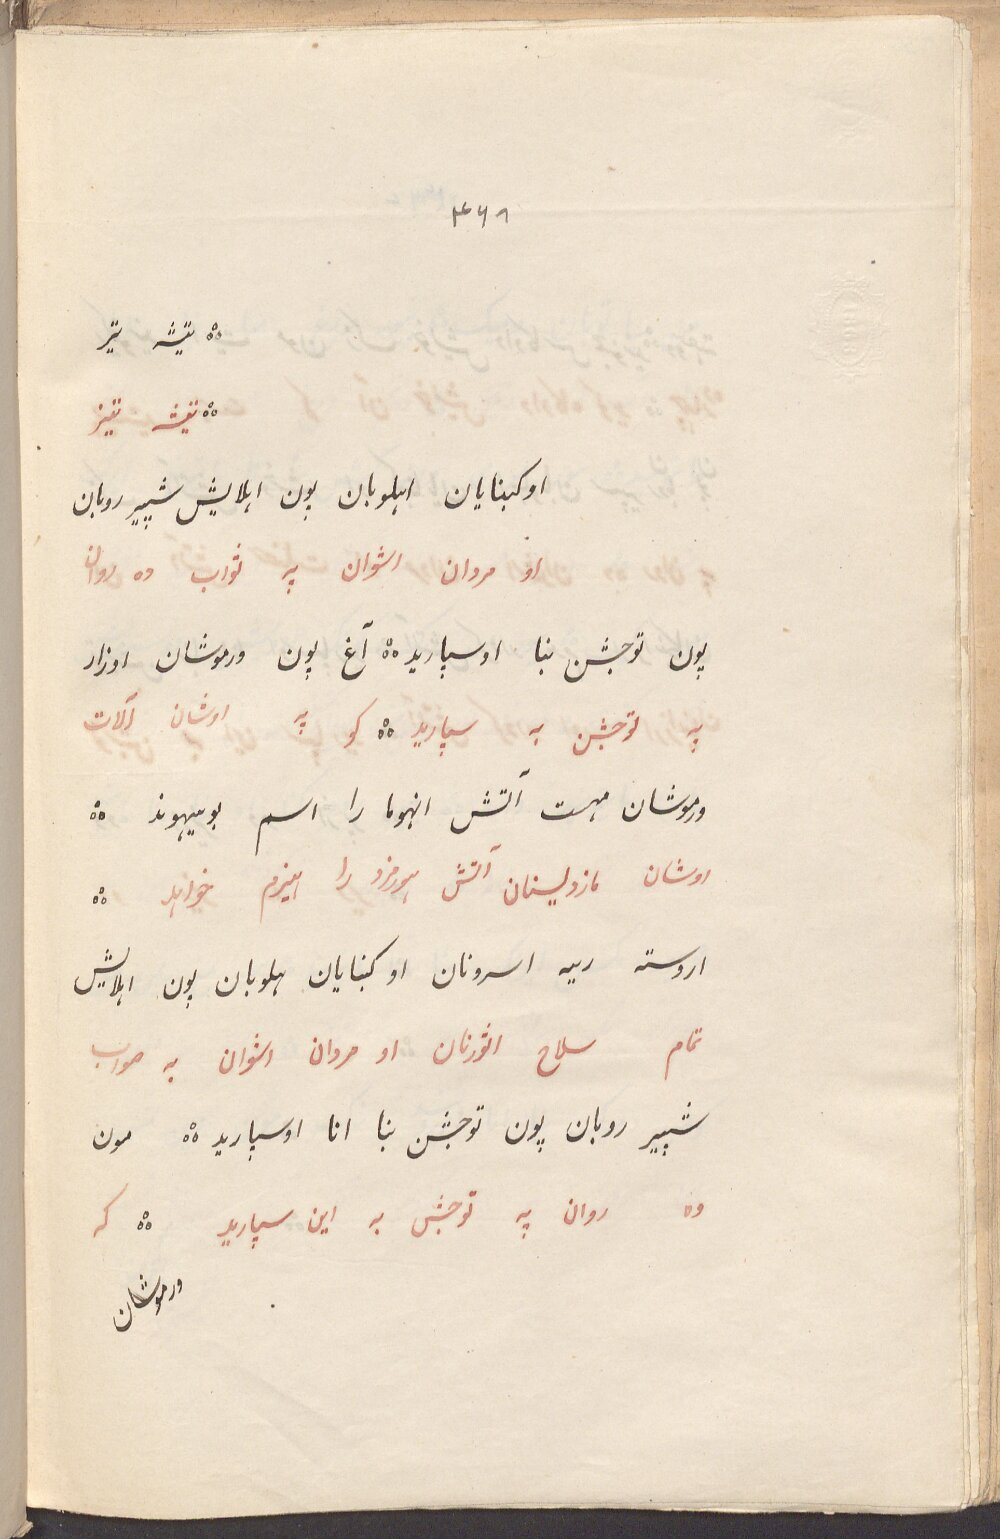 ۴۶۸
ஃ تیشه تیز
ஃ تیشه تیز
او کبنایان اهلوبان پون اهلایش شپیر روبان
او مردان اشوان په ثواب ده روان
پون توجشن بنا اوسپارید ஃ آغ پون ورموشان اوزار
په توجشن به سپارید ஃ کو په اوشان آلات
ورموشان مهست آتش انهوما را اسم بوسیهوند ஃ
اوشان مازدلیسنان آتش هورمزد را هیزم خواهد ஃ
اروسته ریه اسرونان او کبنایان هلوبان پون اهلایش
تمام سلاح اثورنان او مردان اشوان به صواب
شپیر روبان پون توجشن بنا انا اوسپارید ஃ مون
وه روان په توجش به این سپارید ஃ که
ورموشان